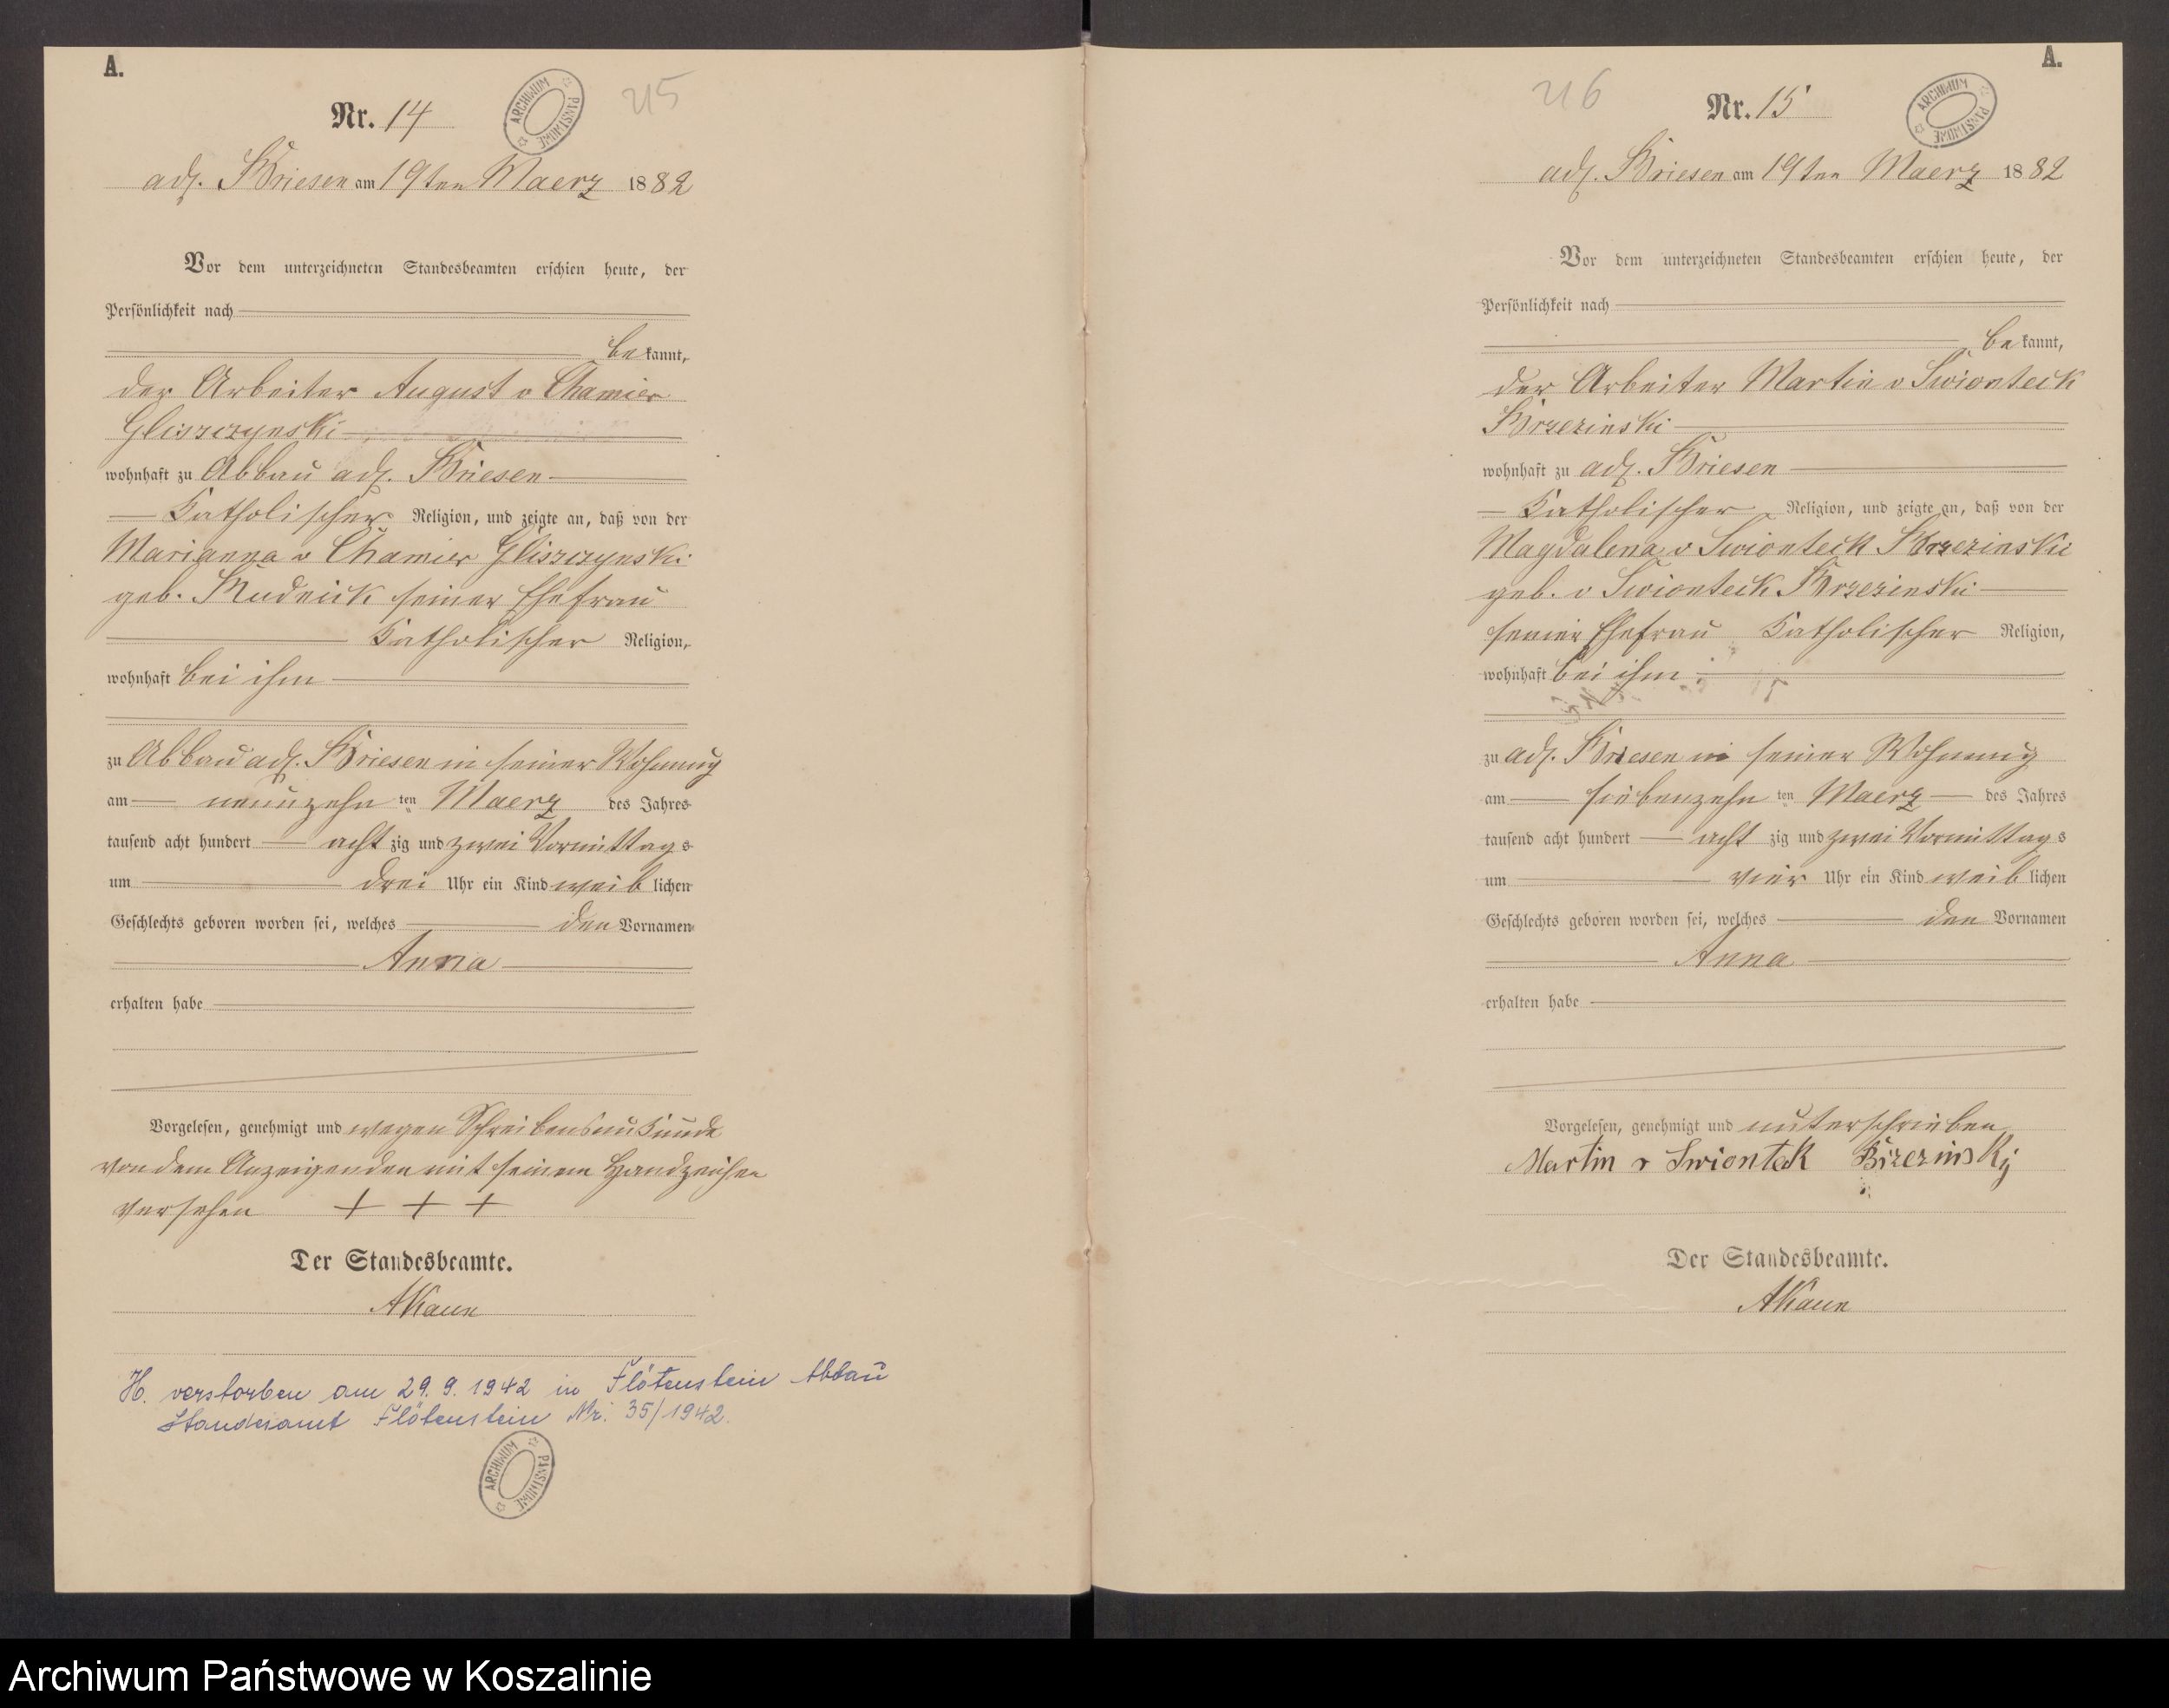 A.
Nr. 14
215
ARCHIWUM PAŃSTWOWE
adl. Briesen am 19ten Maerz 1882
Vor dem unterzeichneten Standesbeamten erschien heute, der
Persönlichkeit nach
be kannt,
der Arbeiter August v Chamier
Gliszczynski
wohnhaft zu Abbau adl. Briesen
Katholischer Religion, und zeigte an, daß von der
Marianna v Chamier Gliszczynski
geb. Rudnick seiner Ehefrau
Katholischer Religion,
wohnhaft bei ihm
zu Abbau adl. Briesen in seiner Wohnung
am neunzehn ten Maerz des Jahres
tausend acht hundert acht zig und zwei Vormittags
um drei Uhr ein Kind weib lichen
Geschlechts geboren worden sei, welches den Vornamen
Anna
erhalten habe
Vorgelesen, genehmigt und wegen Schreibensunkunde
von dem Anzeigenden mit seinem Handzeichen
versehen + + +
Der Standesbeamte.
AKaun
H. verstorben am 29. 9. 1942 in Flötenstein Abbau
Standesamt Flötenstein Nr. 35/1942.
ARCHIWUM PAŃSTWOWE
A.
216
Nr. 15
ARCHIWUM PAŃSTWOWE
adl. Briesen am 19ten Maerz 1882
Vor dem unterzeichneten Standesbeamten erschien heute, der
Persönlichkeit nach
be kannt,
der Arbeiter Martin v Swionteck
Brzezinski
wohnhaft zu adl. Briesen
Katholischer Religion, und zeigte an, daß von der
Magdalena v Swionteck Brzezinski
geb. v Swionteck Brzezinski
seiner Ehefrau Katholischer Religion,
wohnhaft bei ihm
zu adl. Briesen in seiner Wohnung
am siebenzehn ten Maerz des Jahres
tausend acht hundert acht zig und zwei Vormittags
um vier Uhr ein Kind weib lichen
Geschlechts geboren worden sei, welches den Vornamen
Anna
erhalten habe
Vorgelesen, genehmigt und unterschrieben
Martin v Swiontek Brzezinsky
Der Standesbeamte.
AKaun
Archiwum Państwowe w Koszalinie